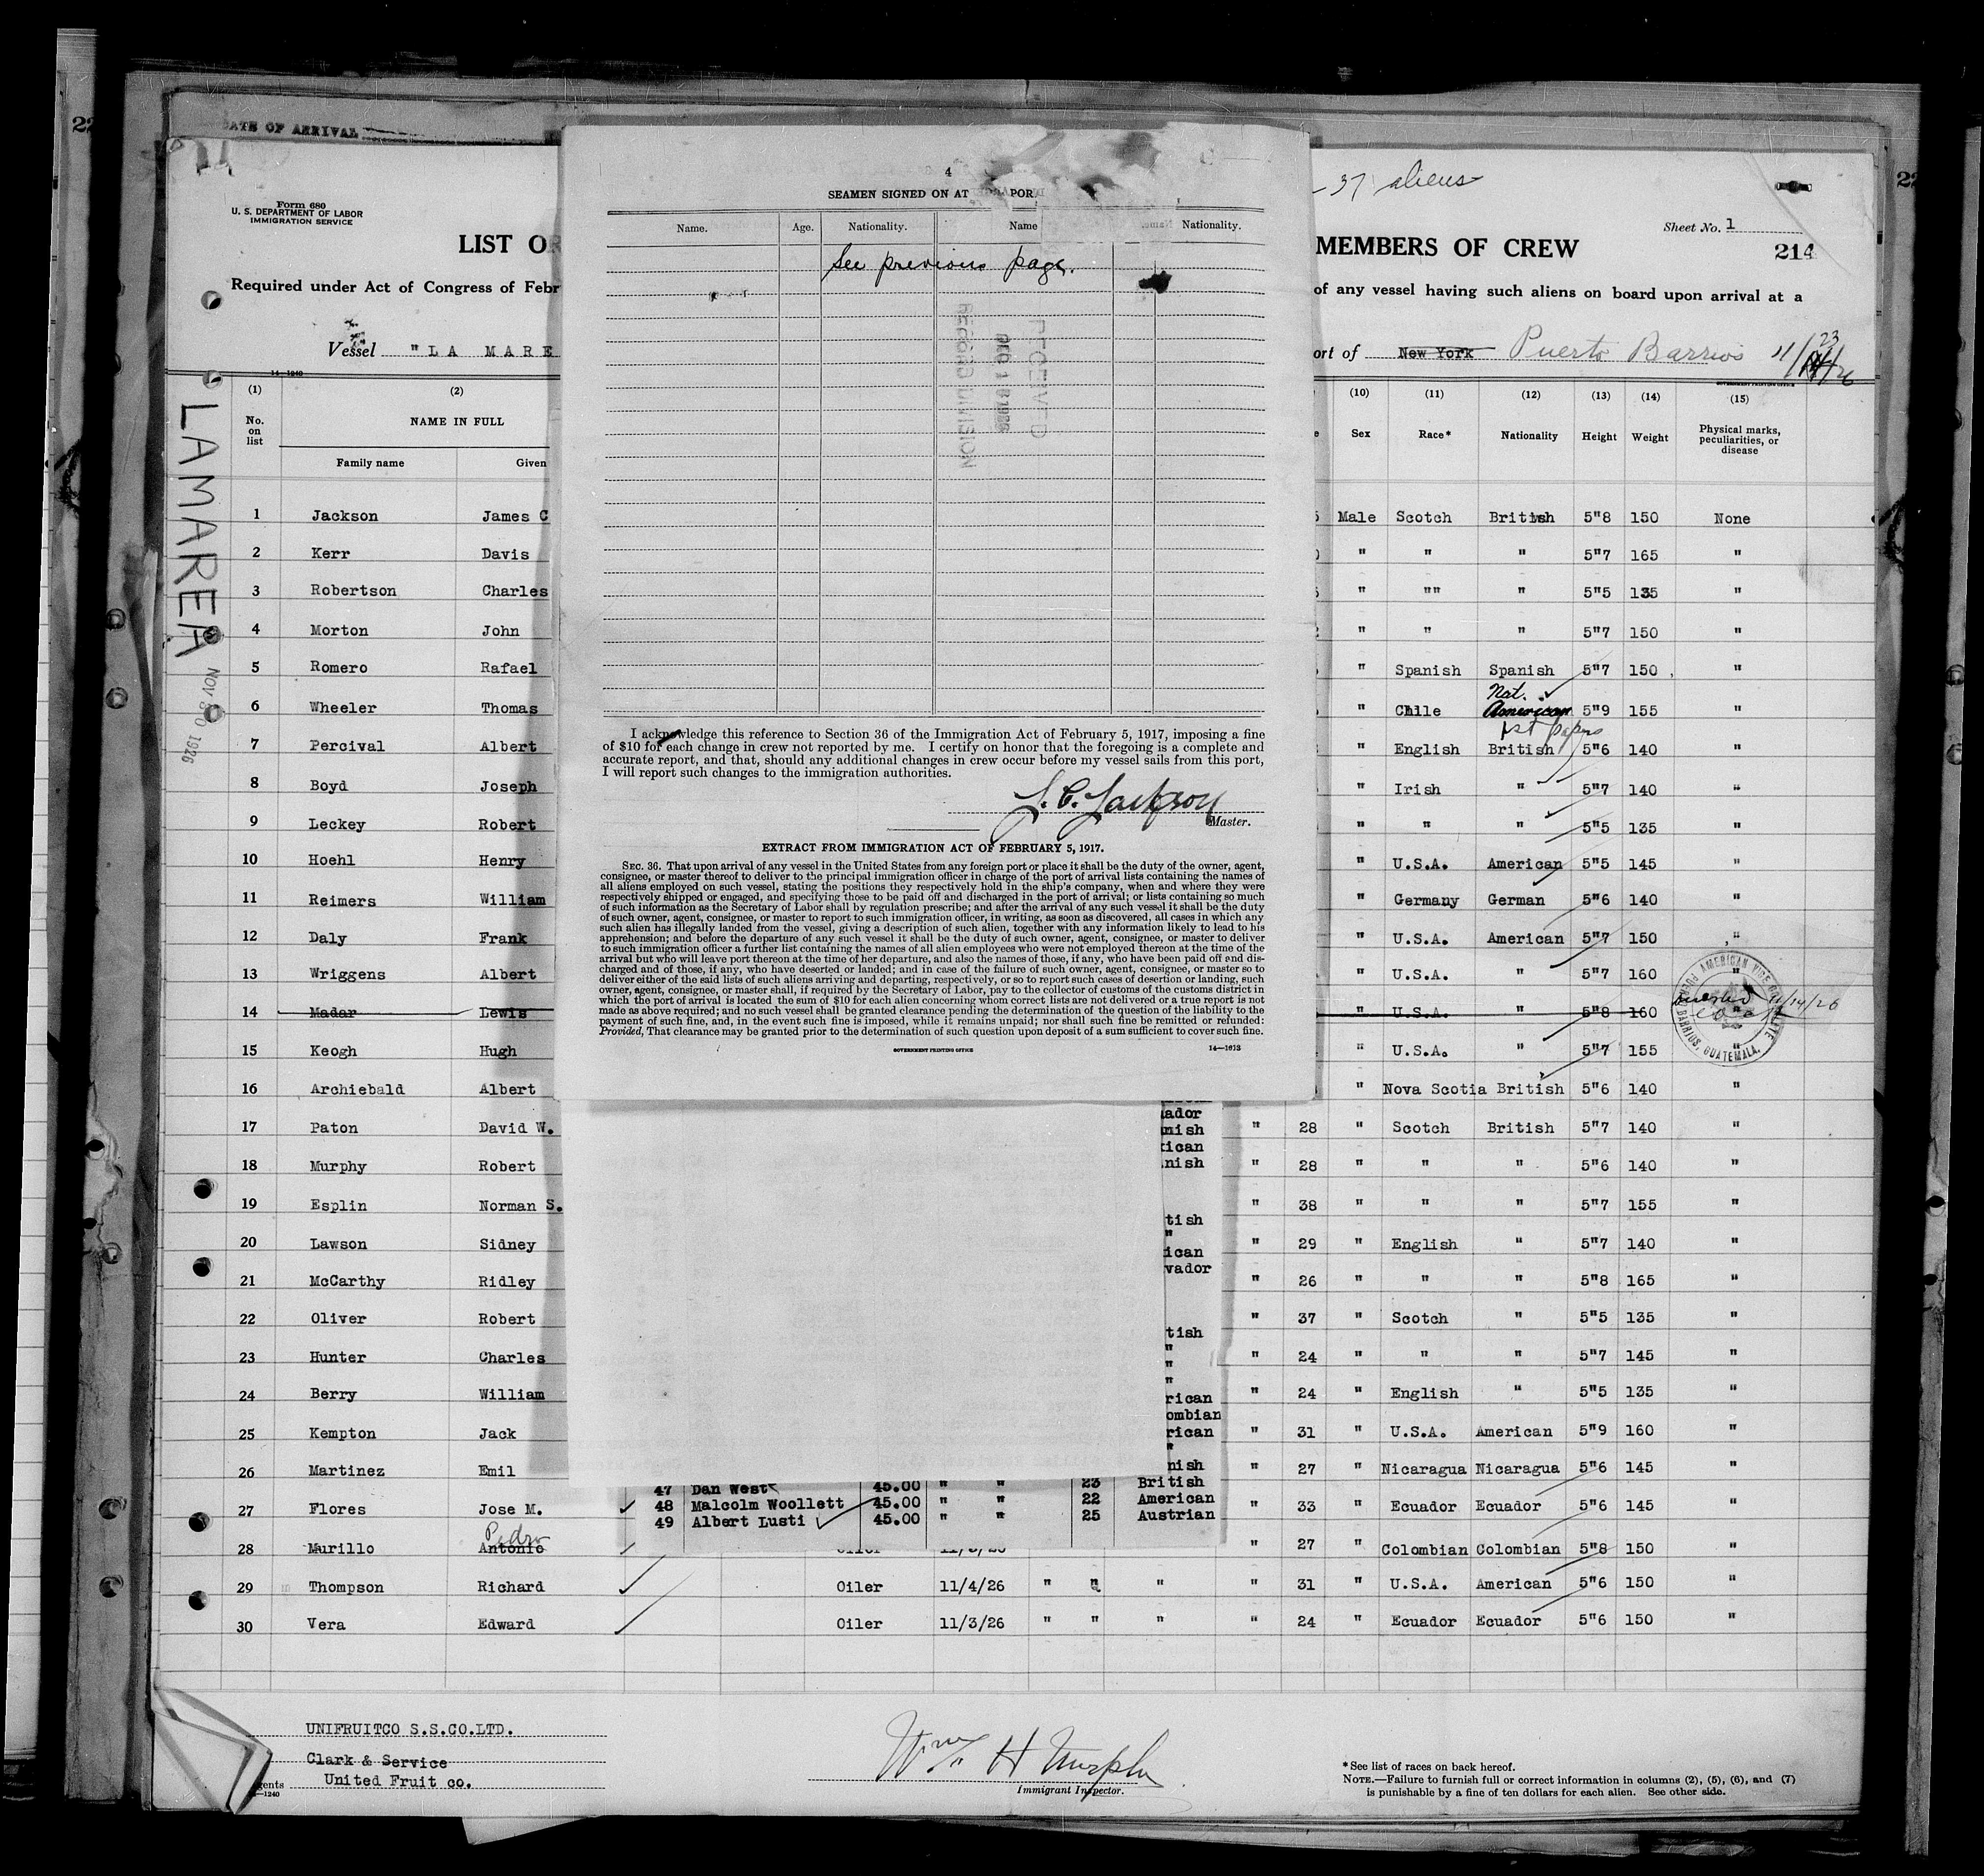 DATE OF ARRIVAL
Form 680
U. S. DEPARTMENT OF LABOR
IMMIGRATION SERVICE
37 aliens
Sheet No. 1
214
LIST OF
MEMBERS OF CREW
Required under Act of Congress of Febr
of any vessel having such aliens on board upon arrival at a
Vessel "LA MARE
ort of New York Puerto Barrios 11/23/26
14-1240
GOVERNMENT PRINTING OFFICE
LAMAREA
NOV 30 1926
(1) (2) (10) (11) (12) (13) (14) (15)
No. on list NAME IN FULL Sex Race* Nationality Height Weight Physical marks, peculiarities, or disease
Family name Given
1 Jackson James C Male Scotch British 5"8 150 None
2 Kerr Davis " " " 5"7 165 "
3 Robertson Charles " "" " 5"5 135 "
4 Morton John " " " 5"7 150 "
5 Romero Rafael " Spanish Spanish 5"7 150 "
Nat.
6 Wheeler Thomas " Chile American 5"9 155 "
1st papers
7 Percival Albert " English British 5"6 140 "
8 Boyd Joseph " Irish " 5"7 140 "
9 Leckey Robert " " " 5"5 135 "
10 Hoehl Henry " U.S.A. American 5"5 145 "
11 Reimers William " Germany German 5"6 140 "
12 Daly Frank " U.S.A. American 5"7 150 "
13 Wriggens Albert " U.S.A. " 5"7 160 "
14 Madar Lewis " U.S.A. " 5"8 160 "
11/14/26
AMERICAN VICE CONSULATE
PUERTO BARRIOS, GUATEMALA.
15 Keogh Hugh " U.S.A. " 5"7 155 "
16 Archiebald Albert " Nova Scotia British 5"6 140 "
17 Paton David W. " 28 " Scotch British 5"7 140 "
18 Murphy Robert " 28 " " " 5"6 140 "
19 Esplin Norman S. " 38 " " " 5"7 155 "
20 Lawson Sidney " 29 " English " 5"7 140 "
21 McCarthy Ridley " 26 " " " 5"8 165 "
22 Oliver Robert " 37 " Scotch " 5"5 135 "
23 Hunter Charles " 24 " " " 5"7 145 "
24 Berry William " 24 " English " 5"5 135 "
25 Kempton Jack " 31 " U.S.A. American 5"9 160 "
26 Martinez Emil " 27 " Nicaragua Nicaragua 5"6 145 "
27 Flores Jose M. " 33 " Ecuador Ecuador 5"6 145 "
Pedro
28 Murillo Antonio " 27 " Colombian Colombian 5"8 150 "
29 Thompson Richard Oiler 11/4/26 " " " " 31 " U.S.A. American 5"6 150 "
30 Vera Edward Oiler 11/3/26 " " " " 24 " Ecuador Ecuador 5"6 150 "
UNIFRUITCO S.S.CO.LTD.
Clark & Service
gents United Fruit co.
1240
Wm H Murphy
Immigrant Inspector.
*See list of races on back hereof.
NOTE.—Failure to furnish full or correct information in columns (2), (5), (6), and (7)
is punishable by a fine of ten dollars for each alien. See other side.
4
SEAMEN SIGNED ON AT POR
Name. Age. Nationality. Name Nationality.
See previous page.
RECEIVED
DEC 1
RECORD DIVISION
I acknowledge this reference to Section 36 of the Immigration Act of February 5, 1917, imposing a fine
of $10 for each change in crew not reported by me. I certify on honor that the foregoing is a complete and
accurate report, and that, should any additional changes in crew occur before my vessel sails from this port,
I will report such changes to the immigration authorities.
J. C. Jackson
Master.
EXTRACT FROM IMMIGRATION ACT OF FEBRUARY 5, 1917.
SEC. 36. That upon arrival of any vessel in the United States from any foreign port or place it shall be the duty of the owner, agent,
consignee, or master thereof to deliver to the principal immigration officer in charge of the port of arrival lists containing the names of
all aliens employed on such vessel, stating the positions they respectively hold in the ship's company, when and where they were
respectively shipped or engaged, and specifying those to be paid off and discharged in the port of arrival; or lists containing so much
of such information as the Secretary of Labor shall by regulation prescribe; and after the arrival of any such vessel it shall be the duty
of such owner, agent, consignee, or master to report to such immigration officer, in writing, as soon as discovered, all cases in which any
such alien has illegally landed from the vessel, giving a description of such alien, together with any information likely to lead to his
apprehension; and before the departure of any such vessel it shall be the duty of such owner, agent, consignee, or master to deliver
to such immigration officer a further list containing the names of all alien employees who were not employed thereon at the time of the
arrival but who will leave port thereon at the time of her departure, and also the names of those, if any, who have been paid off and dis-
charged and of those, if any, who have deserted or landed; and in case of the failure of such owner, agent, consignee, or master so to
deliver either of the said lists of such aliens arriving and departing, respectively, or so to report such cases of desertion or landing, such
owner, agent, consignee, or master shall, if required by the Secretary of Labor, pay to the collector of customs of the customs district in
which the port of arrival is located the sum of $10 for each alien concerning whom correct lists are not delivered or a true report is not
made as above required; and no such vessel shall be granted clearance pending the determination of the question of the liability to the
payment of such fine, and, in the event such fine is imposed, while it remains unpaid; nor shall such fine be remitted or refunded:
Provided, That clearance may be granted prior to the determination of such question upon deposit of a sum sufficient to cover such fine.
GOVERNMENT PRINTING OFFICE
14—1613
ador
nish
ican
nish
tish
"
ican
vador
tish
"
"
"
rican
ombian
rican
"
nish
47 Dan West 45.00 " " 23 British
48 Malcolm Woollett 45.00 " " 22 American
49 Albert Lusti 45.00 " " 25 Austrian